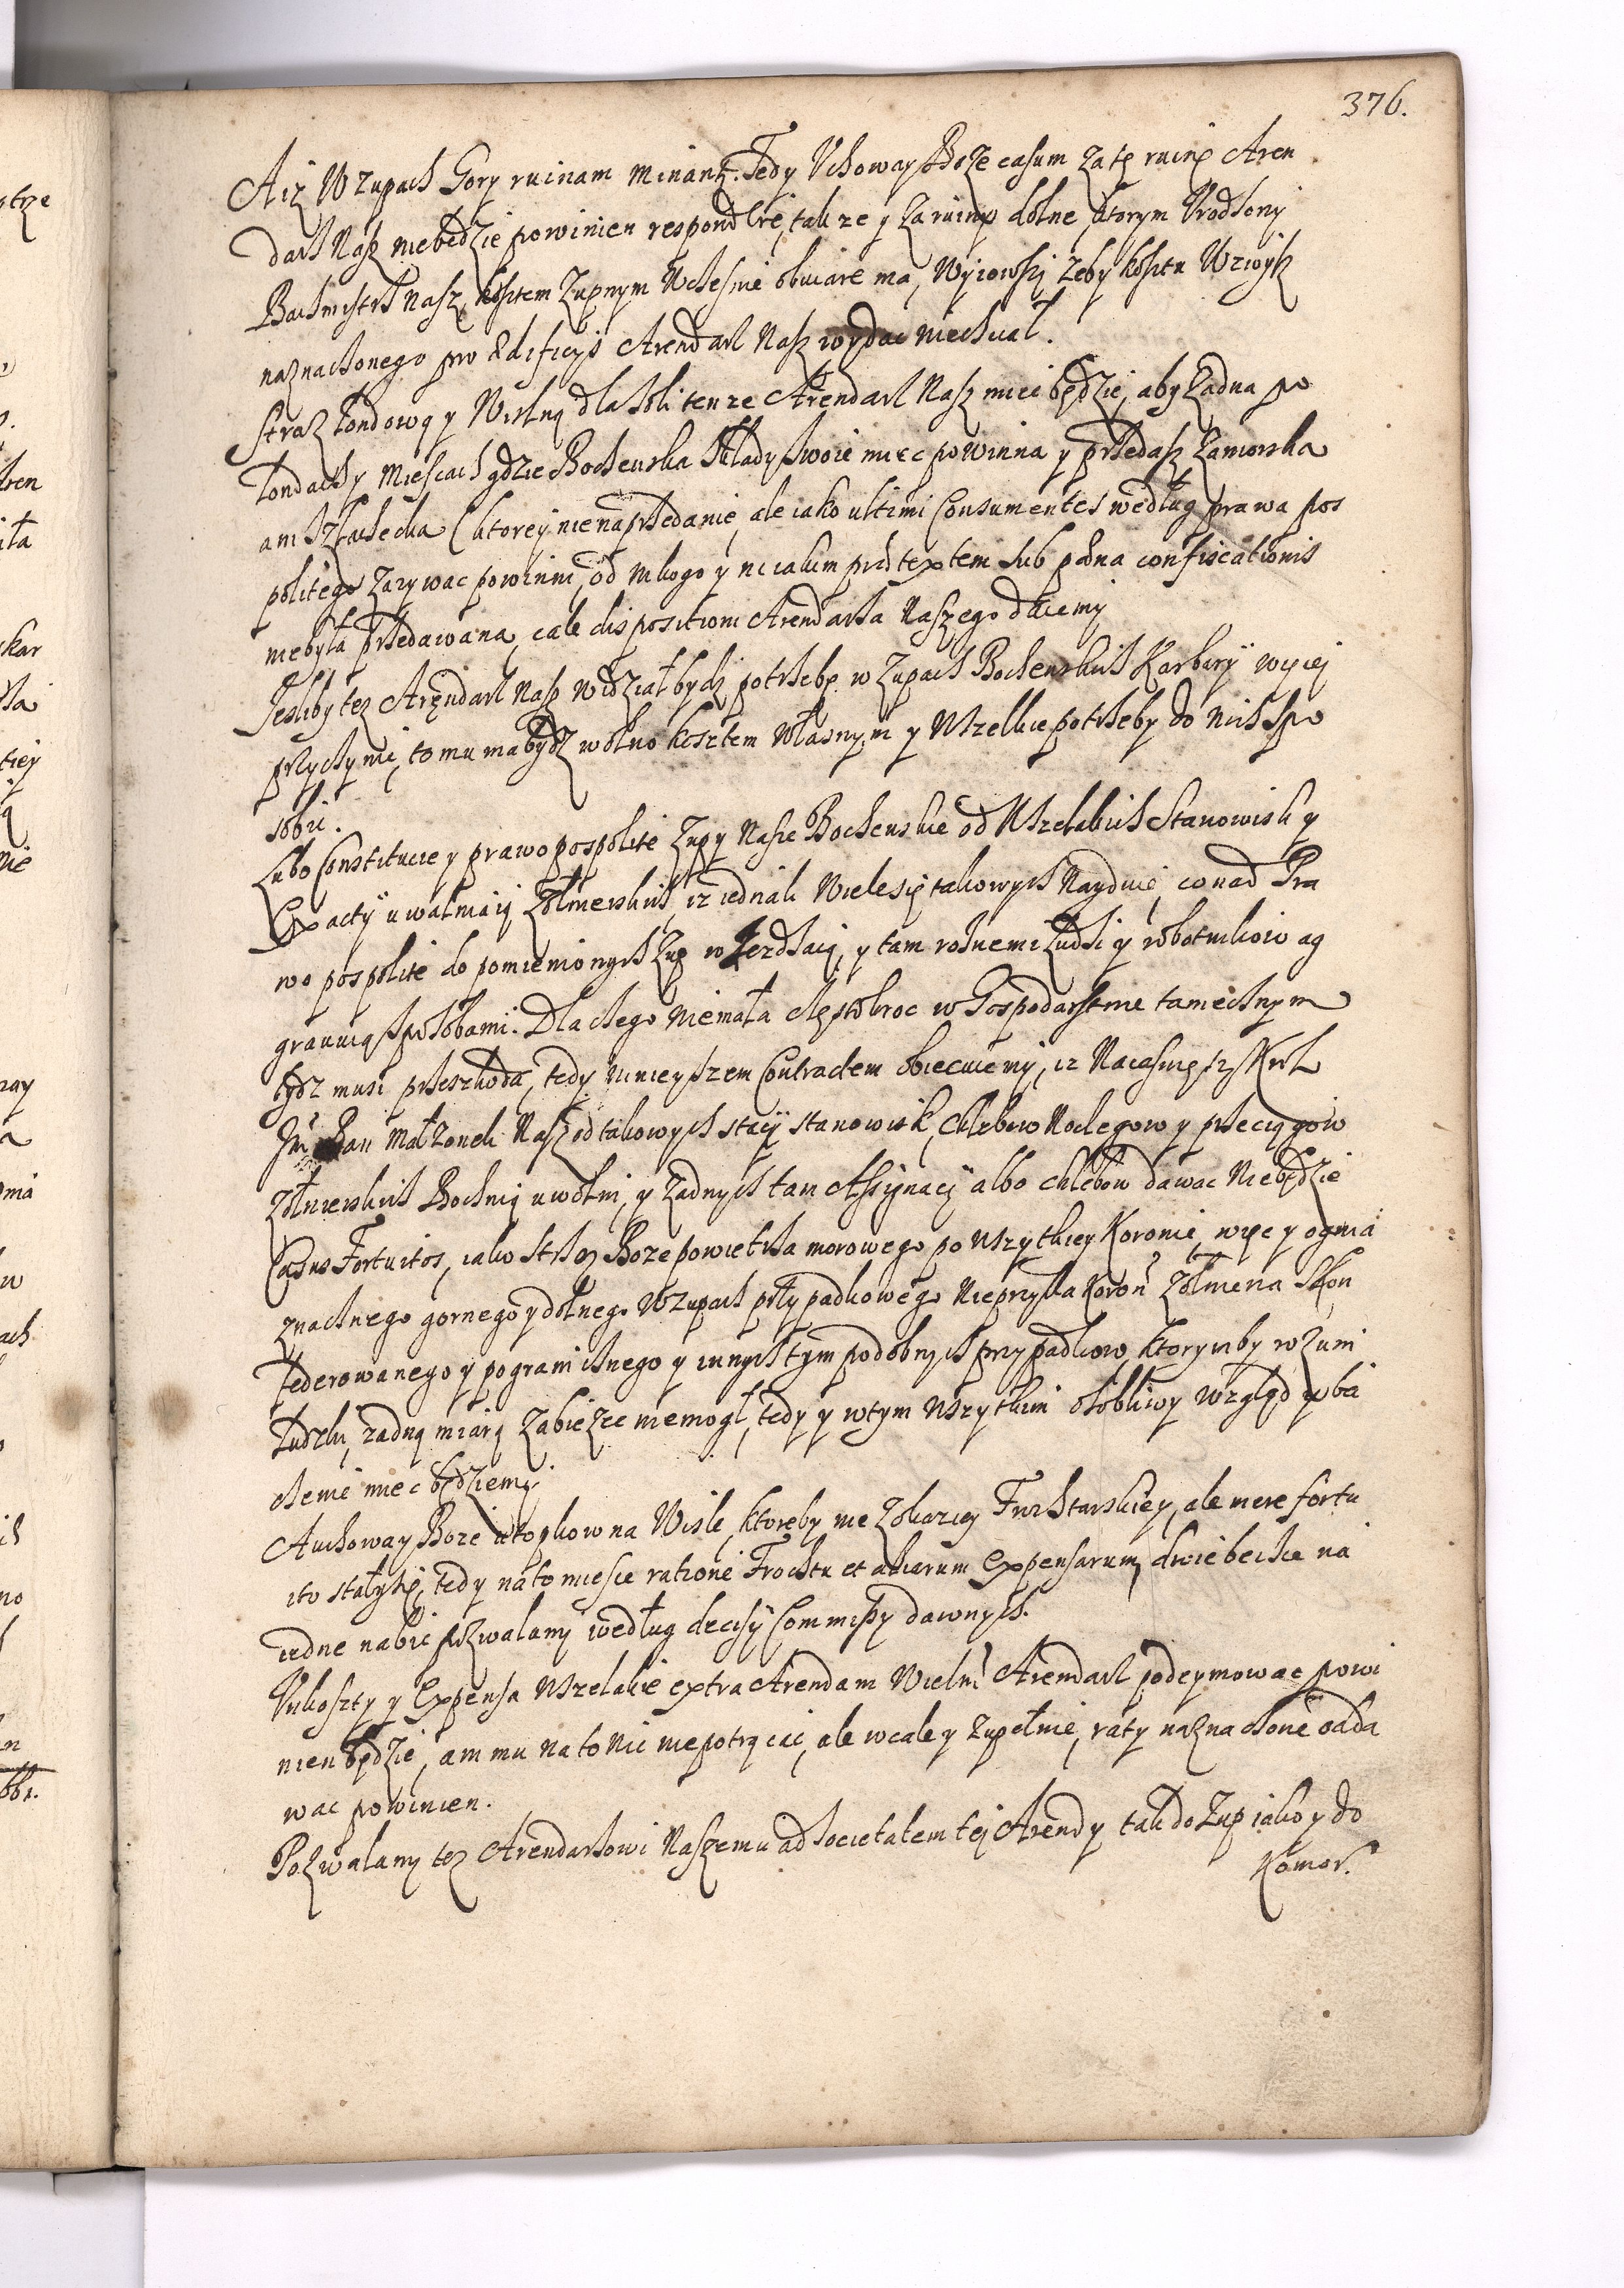 376.
A iż W zupach Gory ruinam minantr. Tedy Uchoway Boże casum za tę ruinę Aren
darz Nasz niebędzie powinien respondere, takze y za ruinę dolne, ktorym Urodzony
Bachmistrz nasz, kosztem Zupnym Wcześnie obwiare ma, Wyiowszy żeby kosztu Wzwysz
naznaczonego pro Edificijs Arendarz Nasz wydac niechciał.
Straz Londową y Wislną dla soli tenze Arendarz Nasz miec będzie, aby żadna po
Londach y Miescach gdzie Bochenska Składy swoie miec powinna y przedasz Zamorska
ani Szlachecka (ktorey nie na przedanie, ale iako ultimi Consumentes według prawa pos
politego zazywac powinni, od nikogo y niiakim praetextem sub paena confiscationis
niebyła przedawana, cale dispositioni Arendarza Naszego daiemy
Jesliby tez Arendarz Nasz widział bydz potrzebę w Zupach Bochenskich Karbary więcej
przyczynic, to mu ma bydz wolno kosztem własnym y Wszelkie potrzeby do nich spo
sobic.
Lubo Constitucie y prawo pospolite Zupy Nasze Bochenskie od Wszelakich Stanowisk y
Exactÿ uwalniaią Zołnierskich, iz iednak Wiele się takowych Nayduie, co nad Pra
wo pospolite do pomienionych Zup wiezdzaią, y tam roznemi Ludzi y robotnikow ag
grauuią sposobami. Dla czego niemała częstokroc w Gospodarstwie tamecznym
bydz musi przeszkoda, tedy ninieyszem Contractem obiecuiemy, iz Naiasnieyszy Krol
Jm Pan Małzonek Nasz od takowych stacÿ stanowisk, Chlebow Noclegow y przeciągow
Zołnierskich Bochnią uwolni, y żadnych tam Assygnacÿ albo chlebow dawac Niebędzie
Casus Fortuitos, iako strzez Boze powietrza morowego po Wszytkiey Koronie, więc y ognia
znacznego gornego y dolnego W zupach przypadkowego Nieprzyiaciela Koron Zołnierza Skon
federowanego y pogranicznego y innych tym podobnych przypadkow, ktorymby rozum
Ludzki, żadną miarą zabiezec niemogł, tedy y w tym Wszytkim osobliwy wzgląd y ba
czenie miec będziemy
A uchoway Boze utopkow na Wisle, ktoreby nie z okazicy Furstarskiey, ale mere fortu
ito stały się, tedy na to miesce ratione Frochtu et aliarum Expensarum, dwie beczke na
iedne nabic pozwalamy według decisÿ Commissy dawnych.
Vukoszty y Expensa Wszelakie extra Arendam Wielm Arendarz podeymowac powi
nien będzie, ani mu na to nic niepotrącać, ale wcale y zupełnie, raty naznaczone odda
wac powinien.
Pozwalamy tez Arendarzowi Naszemu ad societatem tej Arendy tak do Zup iako y do
Komor.